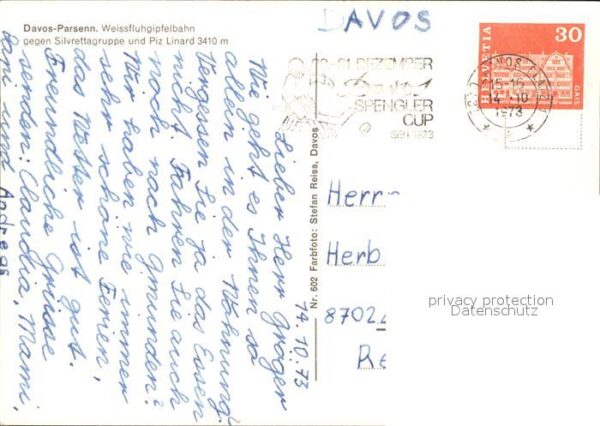 Davos-Parsenn. Weissfluhgipfelbahn
gegen Silvrettagruppe und Piz Linard 3410 m
DAVOS
26-31 DEZEMBER
Davos
SPENGLER
CUP
SEIT 1923
DAVOS
15-15
14-10
1973
HELVETIA
30
GAIS
14.10.73
Lieber Herr Gröger
Wie geht es Ihnen so
allein in der Wohnung?
Vergessen Sie ja das Essen
nicht. Fahren Sie auch
noch nach Gmunden?
Wir haben wie immer
sehr schöne Ferien,
das Wetter ist gut.
Freundliche Grüsse
senden: Claudia, Mami,
Dani und Andreas
Nr. 602 Farbfoto: Stefan Reiss, Davos
Herr
Herb
8702
privacy protection
Datenschutz